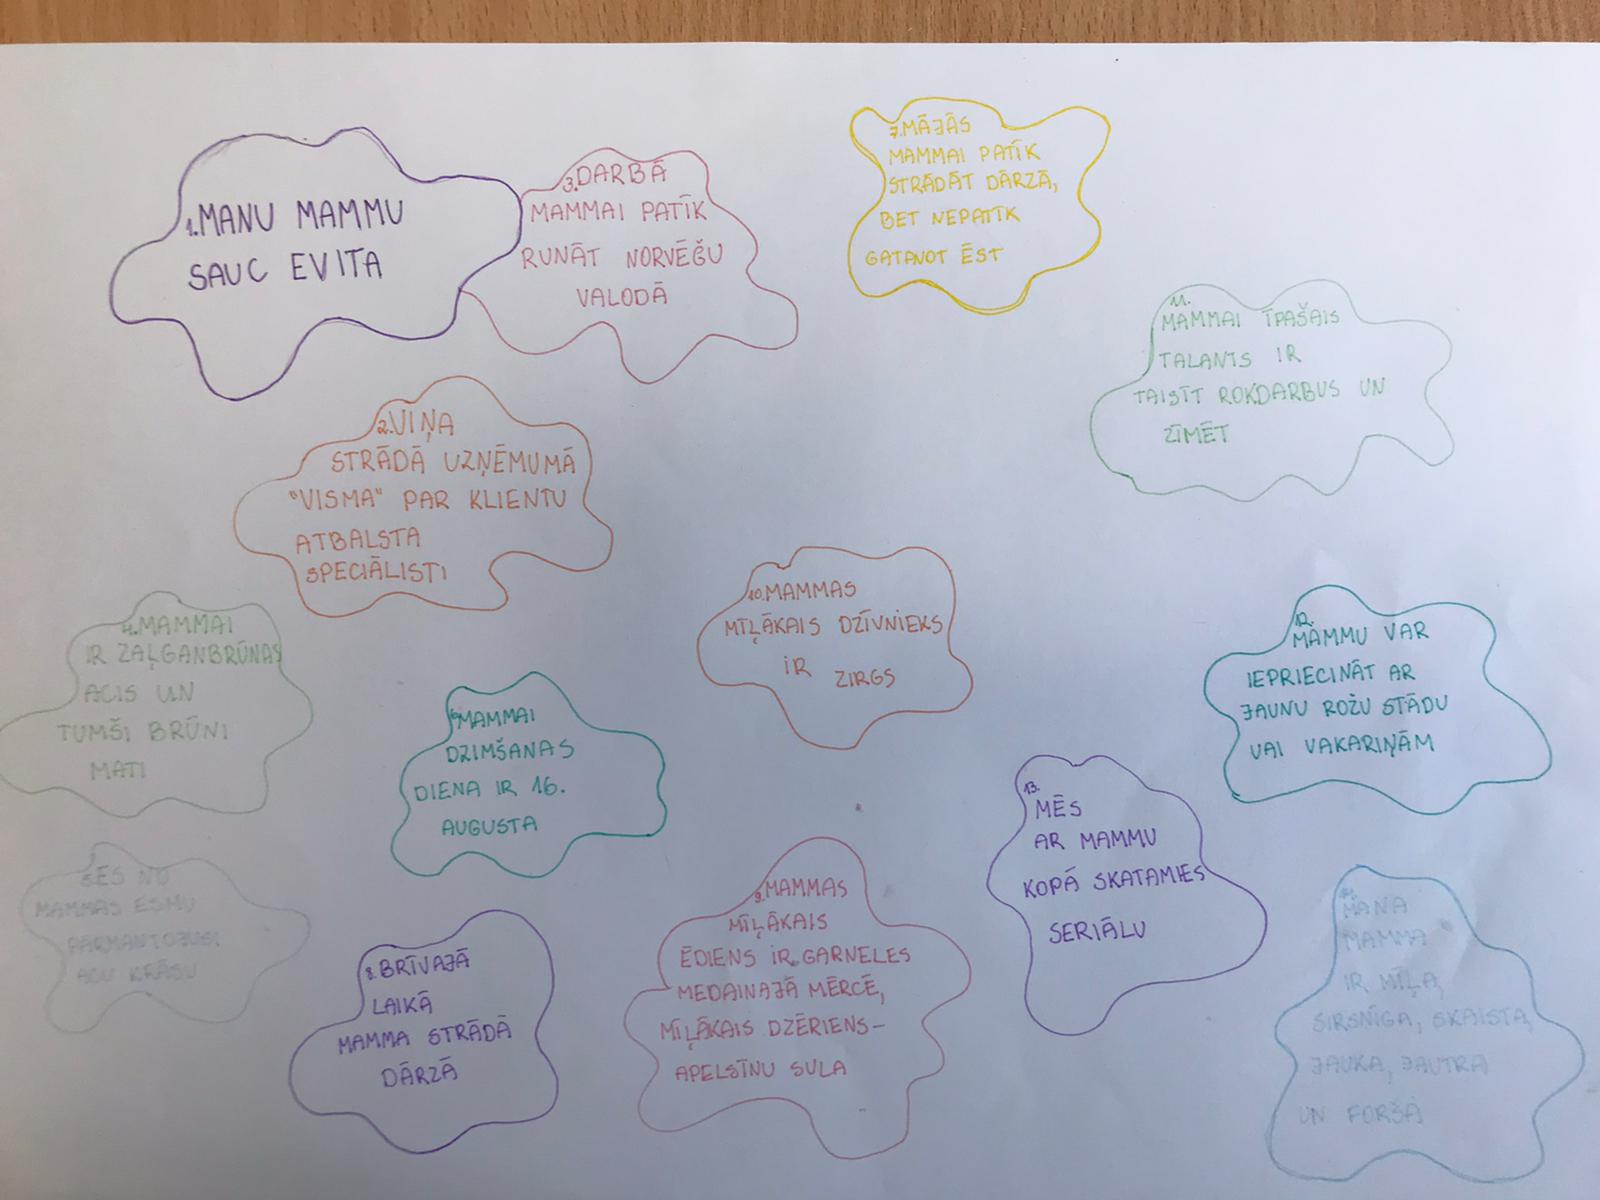 1.MANU MAMMU
SAUC EVITA
2.VIŅA
STRĀDĀ UZŅĒMUMĀ
"VISMA" PAR KLIENTU
ATBALSTA
SPECIĀLISTI
3.DARBĀ
MAMMAI PATĪK
RUNĀT NORVĒĢU
VALODĀ
4.MAMMAI
IR ZAĻGANBRŪNAS
ACIS UN
TUMŠI BRŪNI
MATI
5.ES NO
MAMMAS ESMU
PĀRMANTOJUSI
ACU KRĀSU
6.MAMMAI
DZIMŠANAS
DIENA IR 16.
AUGUSTA
7.MĀJĀS
MAMMAI PATĪK
STRĀDĀT DĀRZĀ,
BET NEPATĪK
GATAVOT ĒST
8.BRĪVAJĀ
LAIKĀ
MAMMA STRĀDĀ
DĀRZĀ
9.MAMMAS
MĪĻĀKAIS
ĒDIENS IR GARNELES
MEDAINAJĀ MĒRCĒ,
MĪĻĀKAIS DZĒRIENS-
APELSĪNU SULA
10.MAMMAS
MĪĻĀKAIS DZĪVNIEKS
IR ZIRGS
11.
MAMMAI ĪPAŠAIS
TALANTS IR
TAISĪT ROKDARBUS UN
ZĪMĒT
12.
MAMMU VAR
IEPRIECINĀT AR
JAUNU ROŽU STĀDU
VAI VAKARIŅĀM
13.
MĒS
AR MAMMU
KOPĀ SKATAMIES
SERIĀLU
14.
MANA
MAMMA
IR MĪĻA,
SIRSNĪGA, SKAISTA,
JAUKA, JAUTRA
UN FORŠA